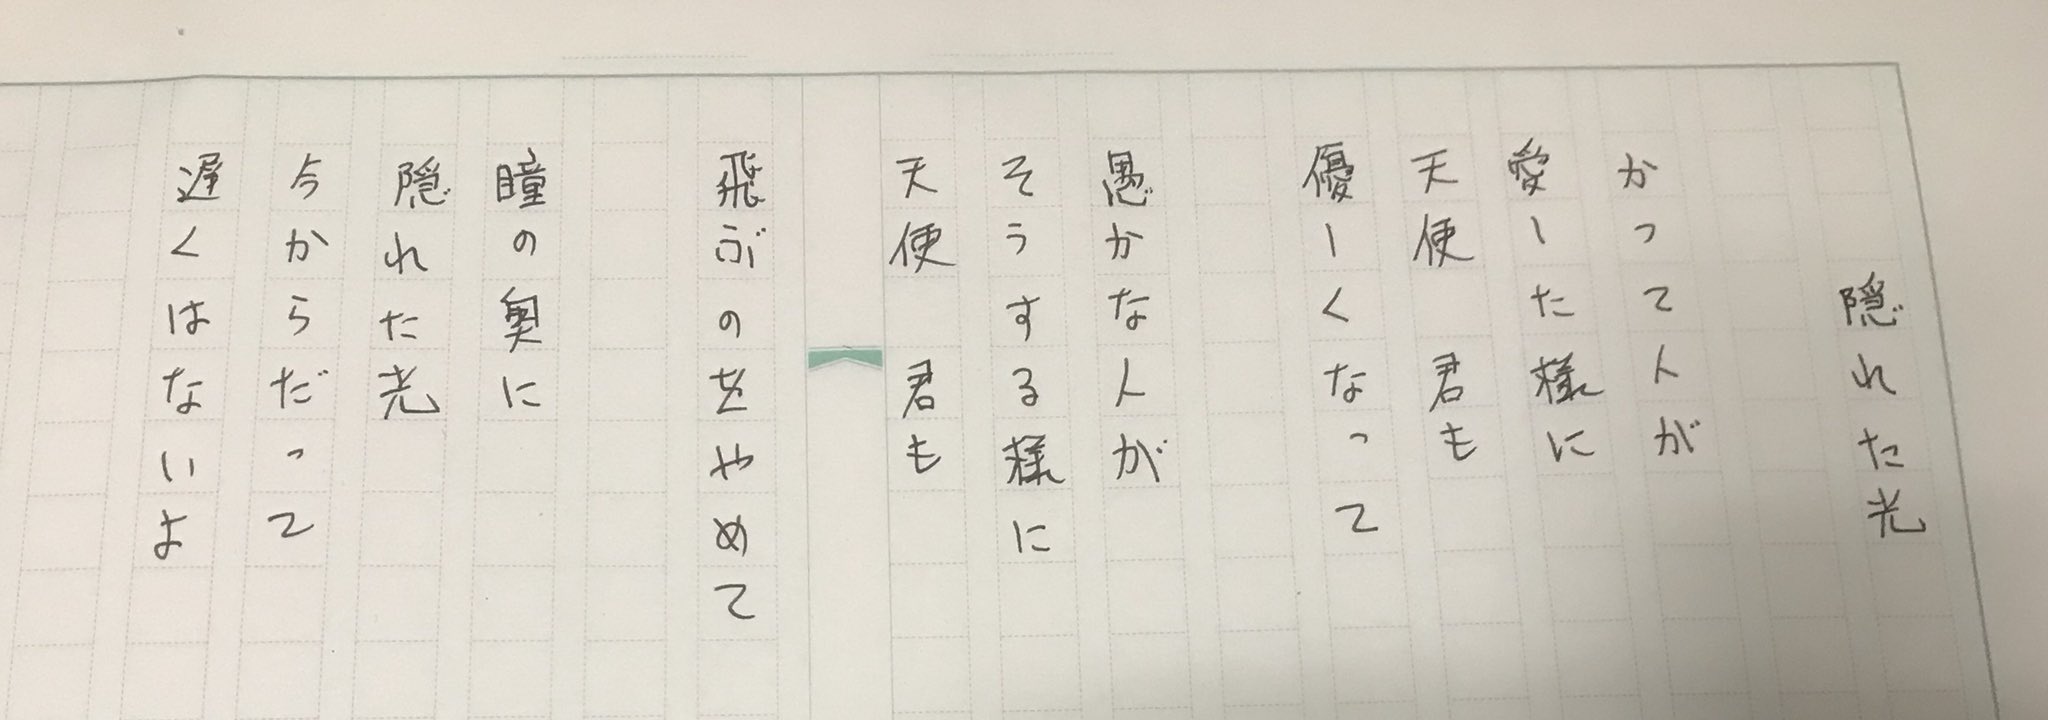 隠れた光
かつて人が
愛した様に
天使 君も
優しくなって
愚かな人が
そうする様に
天使 君も
飛ぶのをやめて
瞳の奥に
隠れた光
今からだって
遅くはないよ